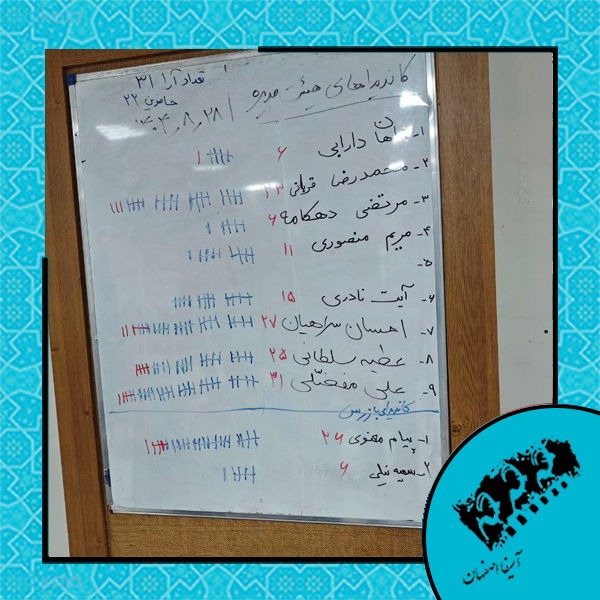 کاندیداهای هیئت مدیره
تعداد آرا ۳۱
حاضرین ۲۲
۴۰۴٫۸٫۲۸
۱- ماهان دارابی ۶
۲- محمدرضا قربانی ۲۳
۳- مرتضی دهکامه ۶
۴- مریم منصوری ۱۱
۵-
۶- آیت نادری ۱۵
۷- احسان سراهیان ۲۷
۸- عطیه سلطانی ۲۵
۹- علی مفضلی ۳۱
کاندیدای بازرس
۱- پیام معنوی ۲۶
۲- سمیه نیلی ۶
آسیفا اصفهان